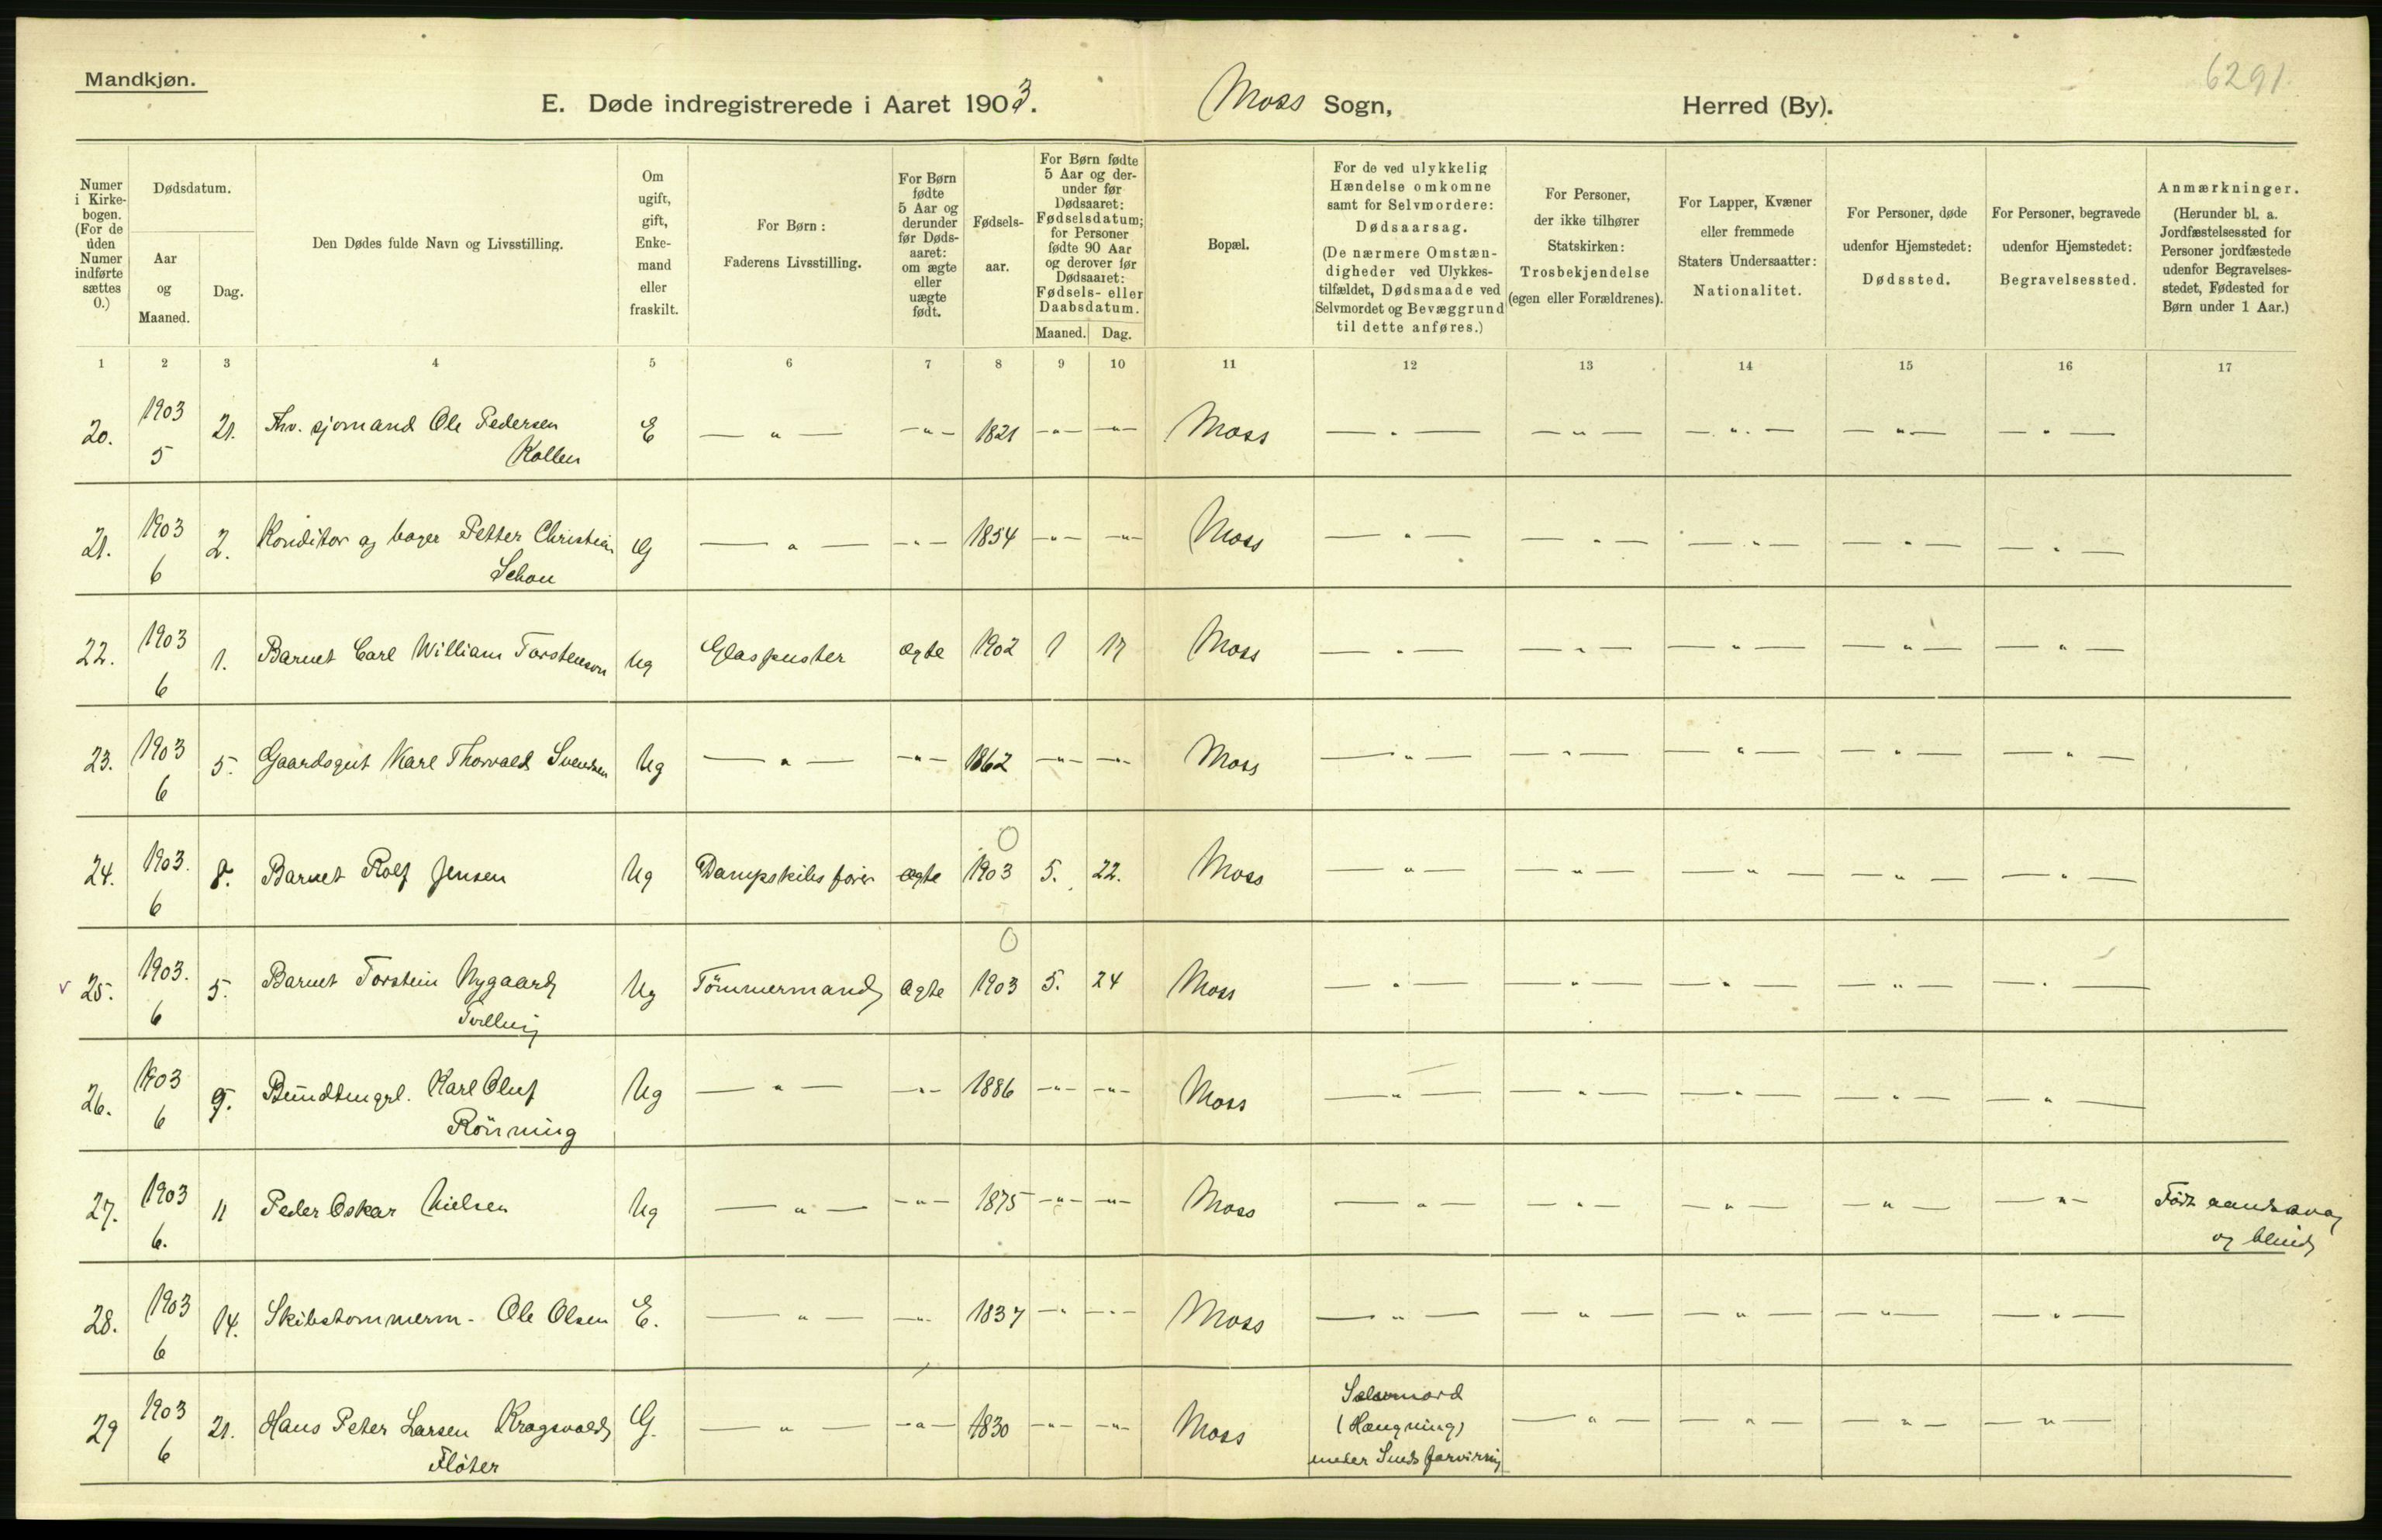 Mandkjøn.
6291.
E. Døde indregistrerede i Aaret 1903. Moss Sogn, Herred (By).
Numer i Kirkebogen. (For de uden Numer indførte sættes 0.)
Dødsdatum.
Aar og Maaned.
Dag.
Den Dødes fulde Navn og Livsstilling.
Om ugift, gift, Enkemand eller fraskilt.
For Børn: Faderens Livsstilling.
For Børn fødte 5 Aar og derunder før Dødsaaret: om ægte eller uægte født.
Fødselsaar.
For Børn fødte 5 Aar og derunder før Dødsaaret: Fødselsdatum; for Personer fødte 90 Aar og derover før Dødsaaret: Fødsels- eller Daabsdatum.
Maaned. Dag.
Bopæl.
For de ved ulykkelig Hændelse omkomne samt for Selvmordere: Dødsaarsag. (De nærmere Omstændigheder ved Ulykkestilfældet, Dødsmaade ved Selvmordet og Bevæggrund til dette anføres.)
For Personer, der ikke tilhører Statskirken: Trosbekjendelse (egen eller Forældrenes).
For Lapper, Kvæner eller fremmede Staters Undersaatter: Nationalitet.
For Personer, døde udenfor Hjemstedet: Dødssted.
For Personer, begravede udenfor Hjemstedet: Begravelsessted.
Anmærkninger. (Herunder bl. a. Jordfæstelsessted for Personer jordfæstede udenfor Begravelsesstedet, Fødested for Børn under 1 Aar.)
1 2 3 4 5 6 7 8 9 10 11 12 13 14 15 16 17
20. 1903 5 21. Fhv. sjømand Ole Pedersen Kollen E — " — — " — 1821 — " — — " — Moss — " — — " — — " — — " — — " —
21. 1903 6 2. Konditor og bager Petter Christian Schou G — " — — " — 1854 — " — — " — Moss — " — — " — — " — — " — — " —
22. 1903 6 1. Barnet Carl William Torstenson Ug Glaspuster ægte 1902 1 17 Moss — " — — " — — " — — " — — " —
23. 1903 6 5. Gaardsgut Karl Thorvald Svendsen Ug — " — — " — 1862 — " — — " — Moss — " — — " — — " — — " — — " —
24. 1903. 6 8. Barnet Rolf Jensen Ug Dampskibsfører ægte 0 1903 5. 22. Moss — " — — " — — " — — " — — " —
v 25. 1903. 6 5. Barnet Torstein Nygaard Tvilling Ug Tömmermand ægte 0 1903 5. 24 Moss — " — — " — — " — — " — — " —
26. 1903 6 9. Karl Oluf Rönning Ug — " — — " — 1886 — " — — " — Moss — " — — " — — " — — " — — " —
27. 1903 6. 11 Peder Oskar Nielsen Ug — " — — " — 1875 — " — — " — Moss — " — — " — — " — — " — — " — Født aandssvag og blind
28. 1903 6 14. Skibstømmerm. Ole Olsen E. — " — — " — 1837 — " — — " — Moss — " — — " — — " — — " — — " —
29 1903 6 21. Hans Peter Larsen Kragsvold Fløter G. — " — — " — 1830 — " — — " — Moss Selvmord (Hængning) under Sindsforvirring — " — — " — — " — — " —